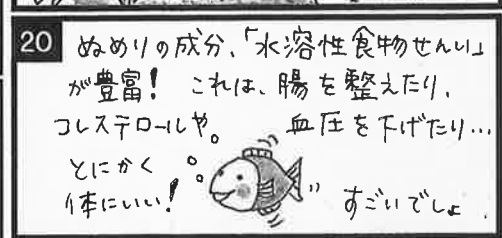 20 ぬめりの成分、「水溶性食物せんい」
が豊富! これは、腸を整えたり、
コレステロールや。 血圧を下げたり…
とにかく
体にいい! すごいでしょ